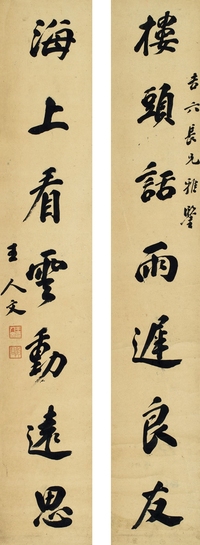 樓頭話雨遲良友
吉六長兄雅鑒
海上看雲動遠思
王人文